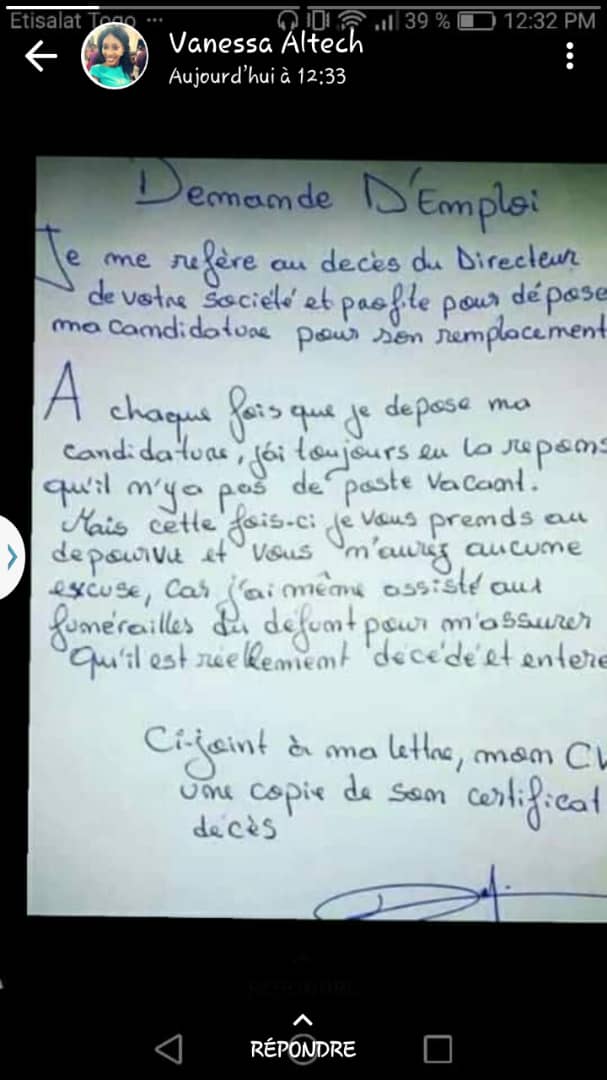 Etisalat Togo ... 39 % 12:32 PM
Vanessa Altech
Aujourd'hui à 12:33
Demande D'Emploi
Je me refère au decès du Directeur
de votre société et profite pour dépose
ma candidature pour son remplacement
A chaque fois que je depose ma
candidature, j'ai toujours eu la repons
qu'il n'ya pas de poste vacant.
Mais cette fois-ci je vous prends au
depourvu et vous n'aurez aucune
excuse, car j'ai même assisté aux
funérailles du défunt pour m'assurer
qu'il est réellement décédé et enteré
Ci-joint à ma lettre, mon CV
une copie de son certificat
décès
RÉPONDRE